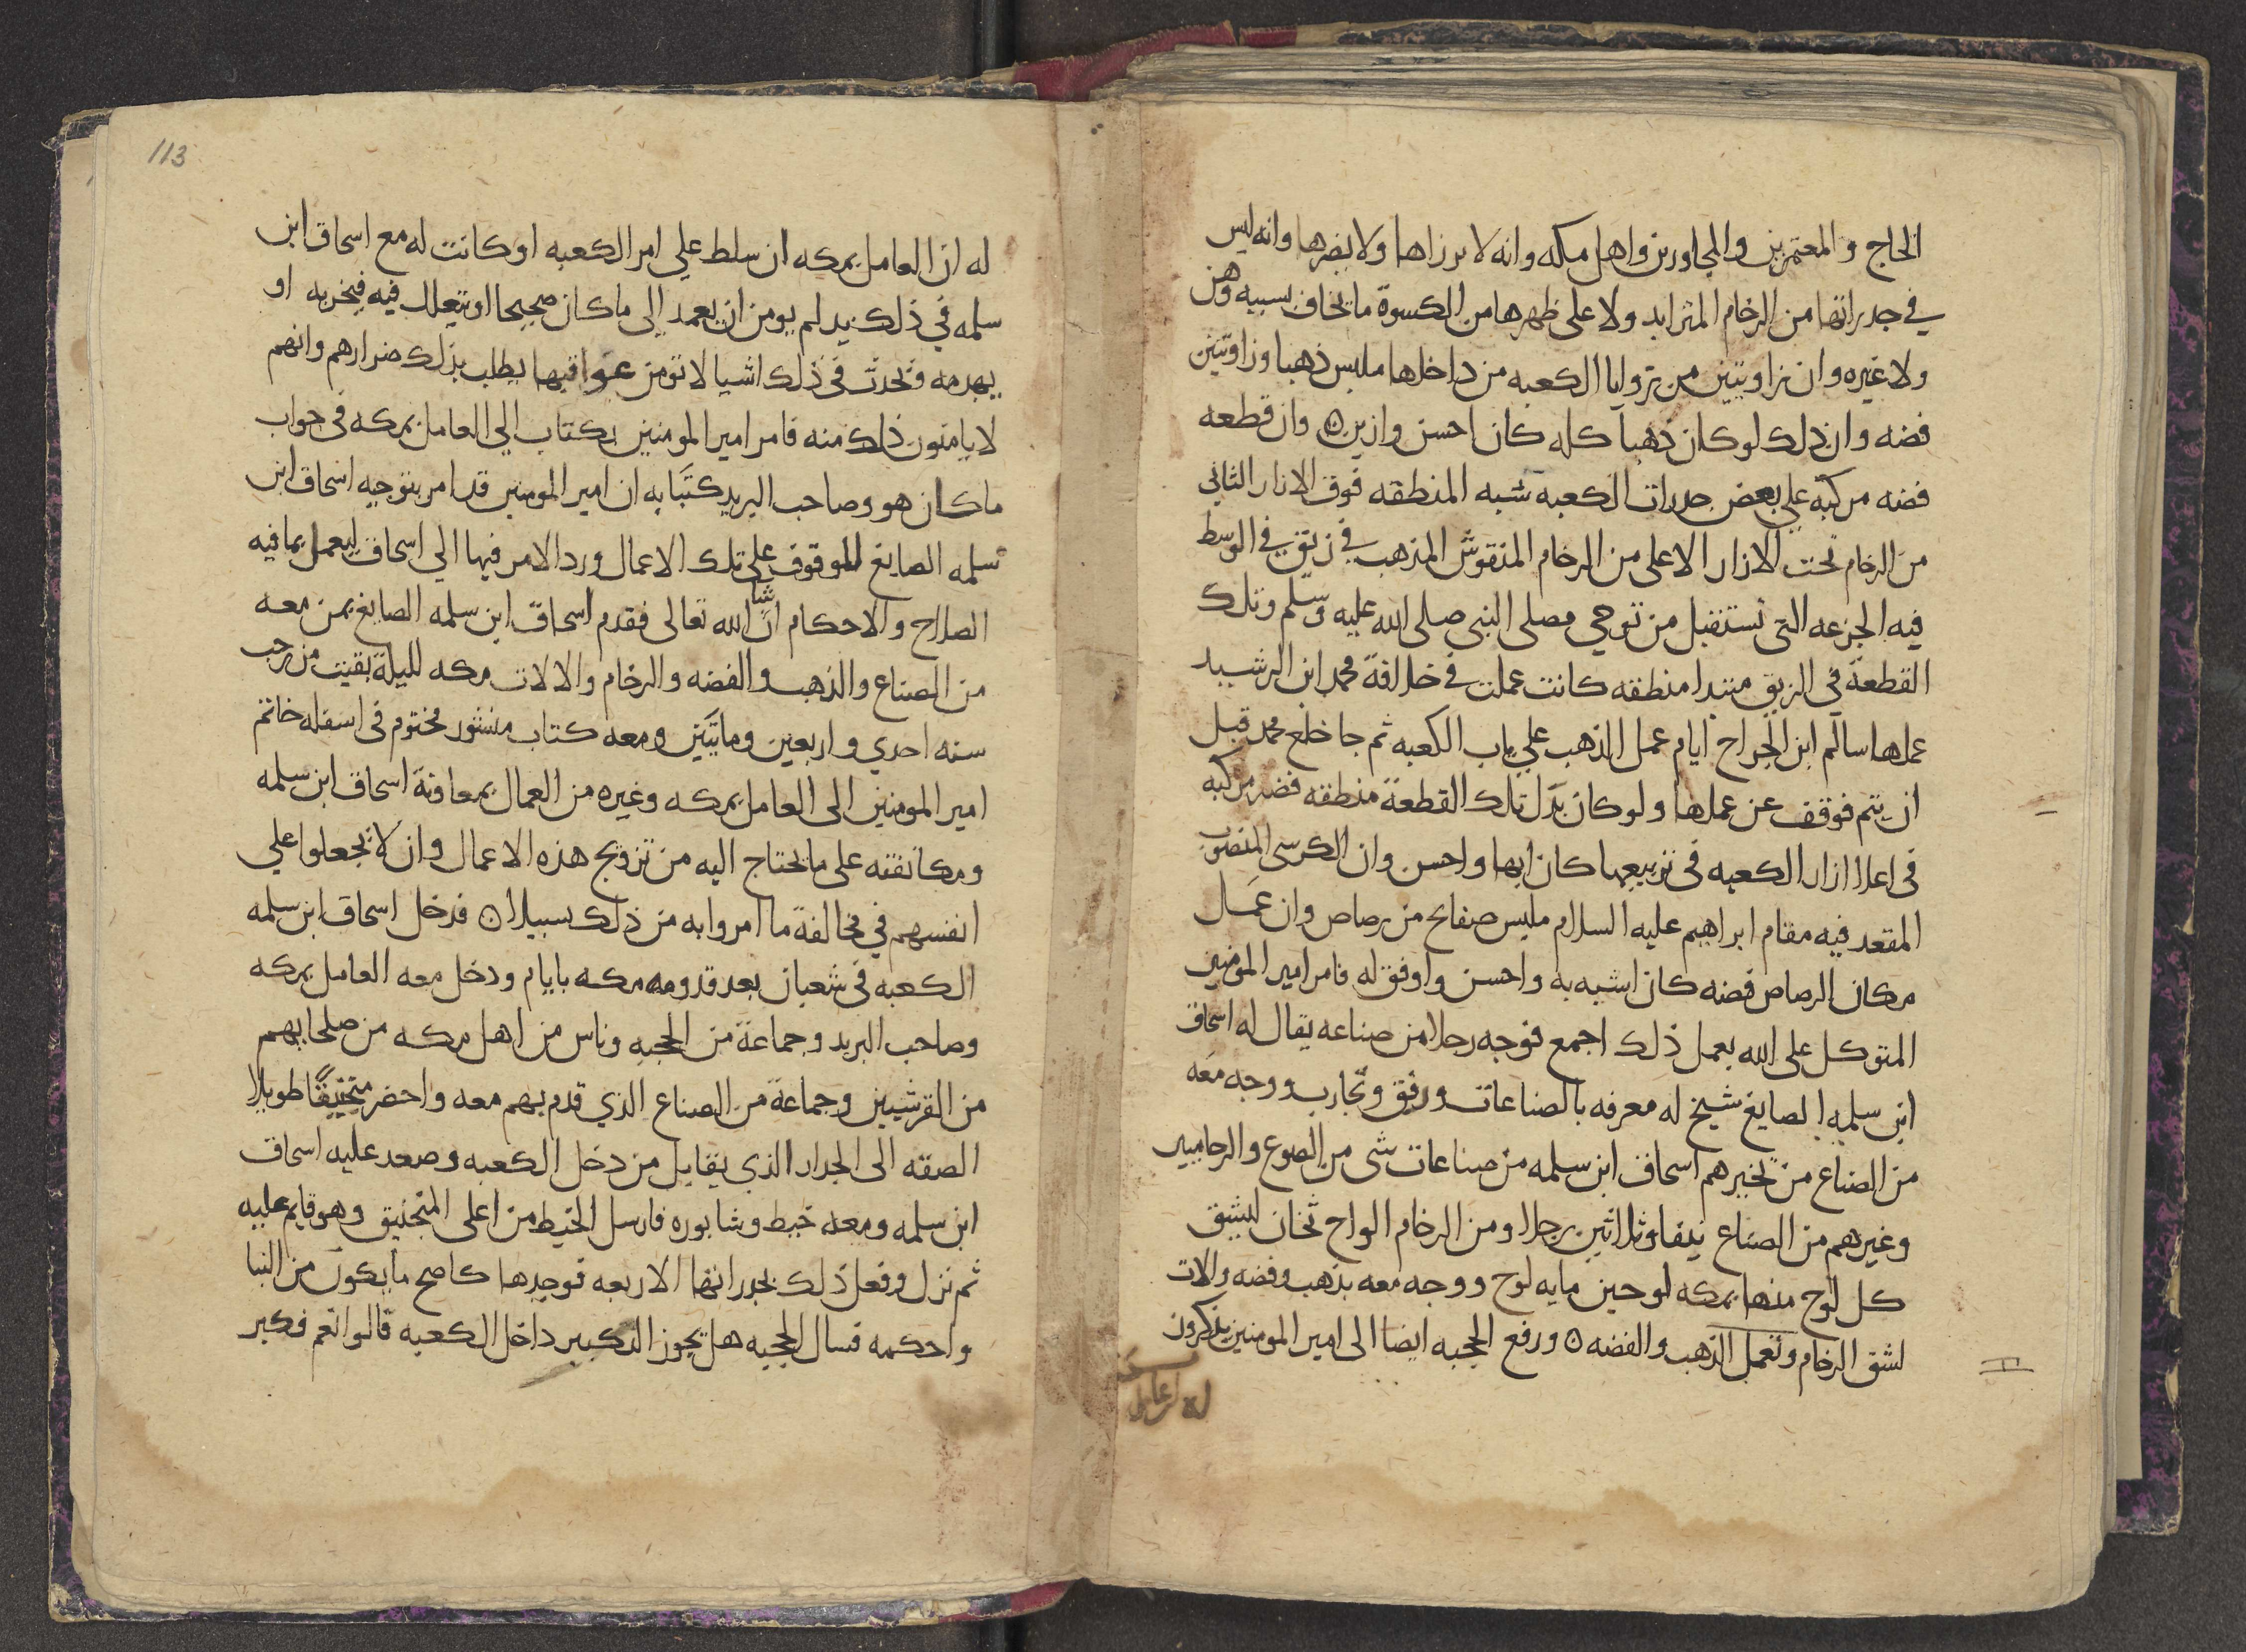 الحاج والمعتمرين والمجاورين واهل مكه وانه لا يرزاها ولا يضرها وانه ليس
في جدراتها من الرخام المتزايد ولا على ظهرها من الكسوة ما يخاف بسببه وهن
ولا غيره وان زاويتين من زوايا الكعبه من داخلها ملبس ذهبا وزاويتين
فضه وان ذلك لو كان ذهبا كله كان احسن وازين ۞ وان قطعه
فضه مركبه علي بعض جدرات الكعبه شبه المنطقه فوق الازار الثاني
من الرخام تحت الازار الاعلى من الرخام المنقوش المذهب في زيق في الوسط
فيه الجزعه التى تستقبل من توخي مصلى النبي صلى الله عليه وسلم وتلك
القطعة في الزيق مبتدا منطقه كانت عملت في خلافة محمد ابن الرشيد
عملها سالم ابن الجراح ايام عمل الذهب علي باب الكعبه ثم جا خلع محمد قبل
ان يتم فوقف عن عملها ولو كان بدل تلك القطعة منطقه فضه مركبه
في اعلا ازار الكعبه في تربيعها كان ابها واحسن وان الكرسي المنصوب
المقعد فيه مقام ابراهيم عليه السلام ملبس صفايح من رصاص وان عمل
مكان الرصاص فضه كان اشبه به واحسن واوفق له فامر امير المومنين
المتوكل على الله بعمل ذلك اجمع فوجه رجلا من صناعه يقال له اسحاق
ابن سلمه الصايغ شيخ له معرفه بالصناعات ورفق وتجارب ووجه معه
من الصناع من تخيرهم اسحاق ابن سلمه من صناعات شى من الصوغ والرخاميين
وغيرهم من الصناع نيفا وثلاثين رجلا ومن الرخام الواح ثخان ليشق
كل لوح منها بمكه لوحين مايه لوح ووجه معه بذهب وفضه والات
لشق الرخام وتعمل الذهب والفضه ۞ ورفع الحجبه ايضا الى امير المومنين يذكرون
113
له ان العامل بمكه ان سلط علي امر الكعبه او كانت له مع اسحاق ابن
سلمه في ذلك يد لم يومن ان يعمد إلى ما كان صحيحا او يتعلل فيه فيخربه او
يهدمه فيحدث في ذلك اشيا لا تومن عواقبها يطلب بذلك ضرارهم وانهم
لا يامنون ذلك منه فامر امير المومنين بكتاب الي العامل بمكه في جواب
ما كان هو وصاحب البريد كتبا به ان امير المومنين قد امر بتوجيه اسحاق ابن
سلمه الصايغ للوقوف علي تلك الاعمال ورد الامر فيها الي اسحاق ليعمل بما فيه
الصلاح والاحكام ان شا الله تعالى فقدم اسحاق ابن سلمه الصايغ بمن معه
من الصناع والذهب والفضه والرخام والالات مكه لليلة بقيت من رجب
سنه احدي واربعين ومايتين ومعه كتاب منشور مختوم في اسفله خاتم
امير المومنين الى العامل بمكه وغيره من العمال بمعاونة اسحاق ابن سلمه
ومكانفته على ما يحتاج اليه من ترويج هذه الاعمال وان لا يجعلوا علي
انفسهم في مخالفة ما امروا به من ذلك سبيلا ۞ فدخل اسحاق ابن سلمه
الكعبه في شعبان بعد قدومه مكه بايام ودخل معه العامل بمكه
وصاحب البريد وجماعة من الحجبه وناس من اهل مكه من صلحايهم
من القرشيين وجماعة من الصناع الذي قدم بهم معه واحضر منجنيقا طويلا
الصقه الى الجدار الذي يقابل من دخل الكعبه وصعد عليه اسحاق
ابن سلمه ومعه خيط وشابوره فارسل الخيط من اعلى المنجنيق وهو قايم عليه
ثم نزل وفعل ذلك بجدراتها الاربعه فوجدها كاصح ما يكون من البنا
واحكمه فسال الحجبه هل يجوز التكبير داخل الكعبه قالوا نعم فكبر